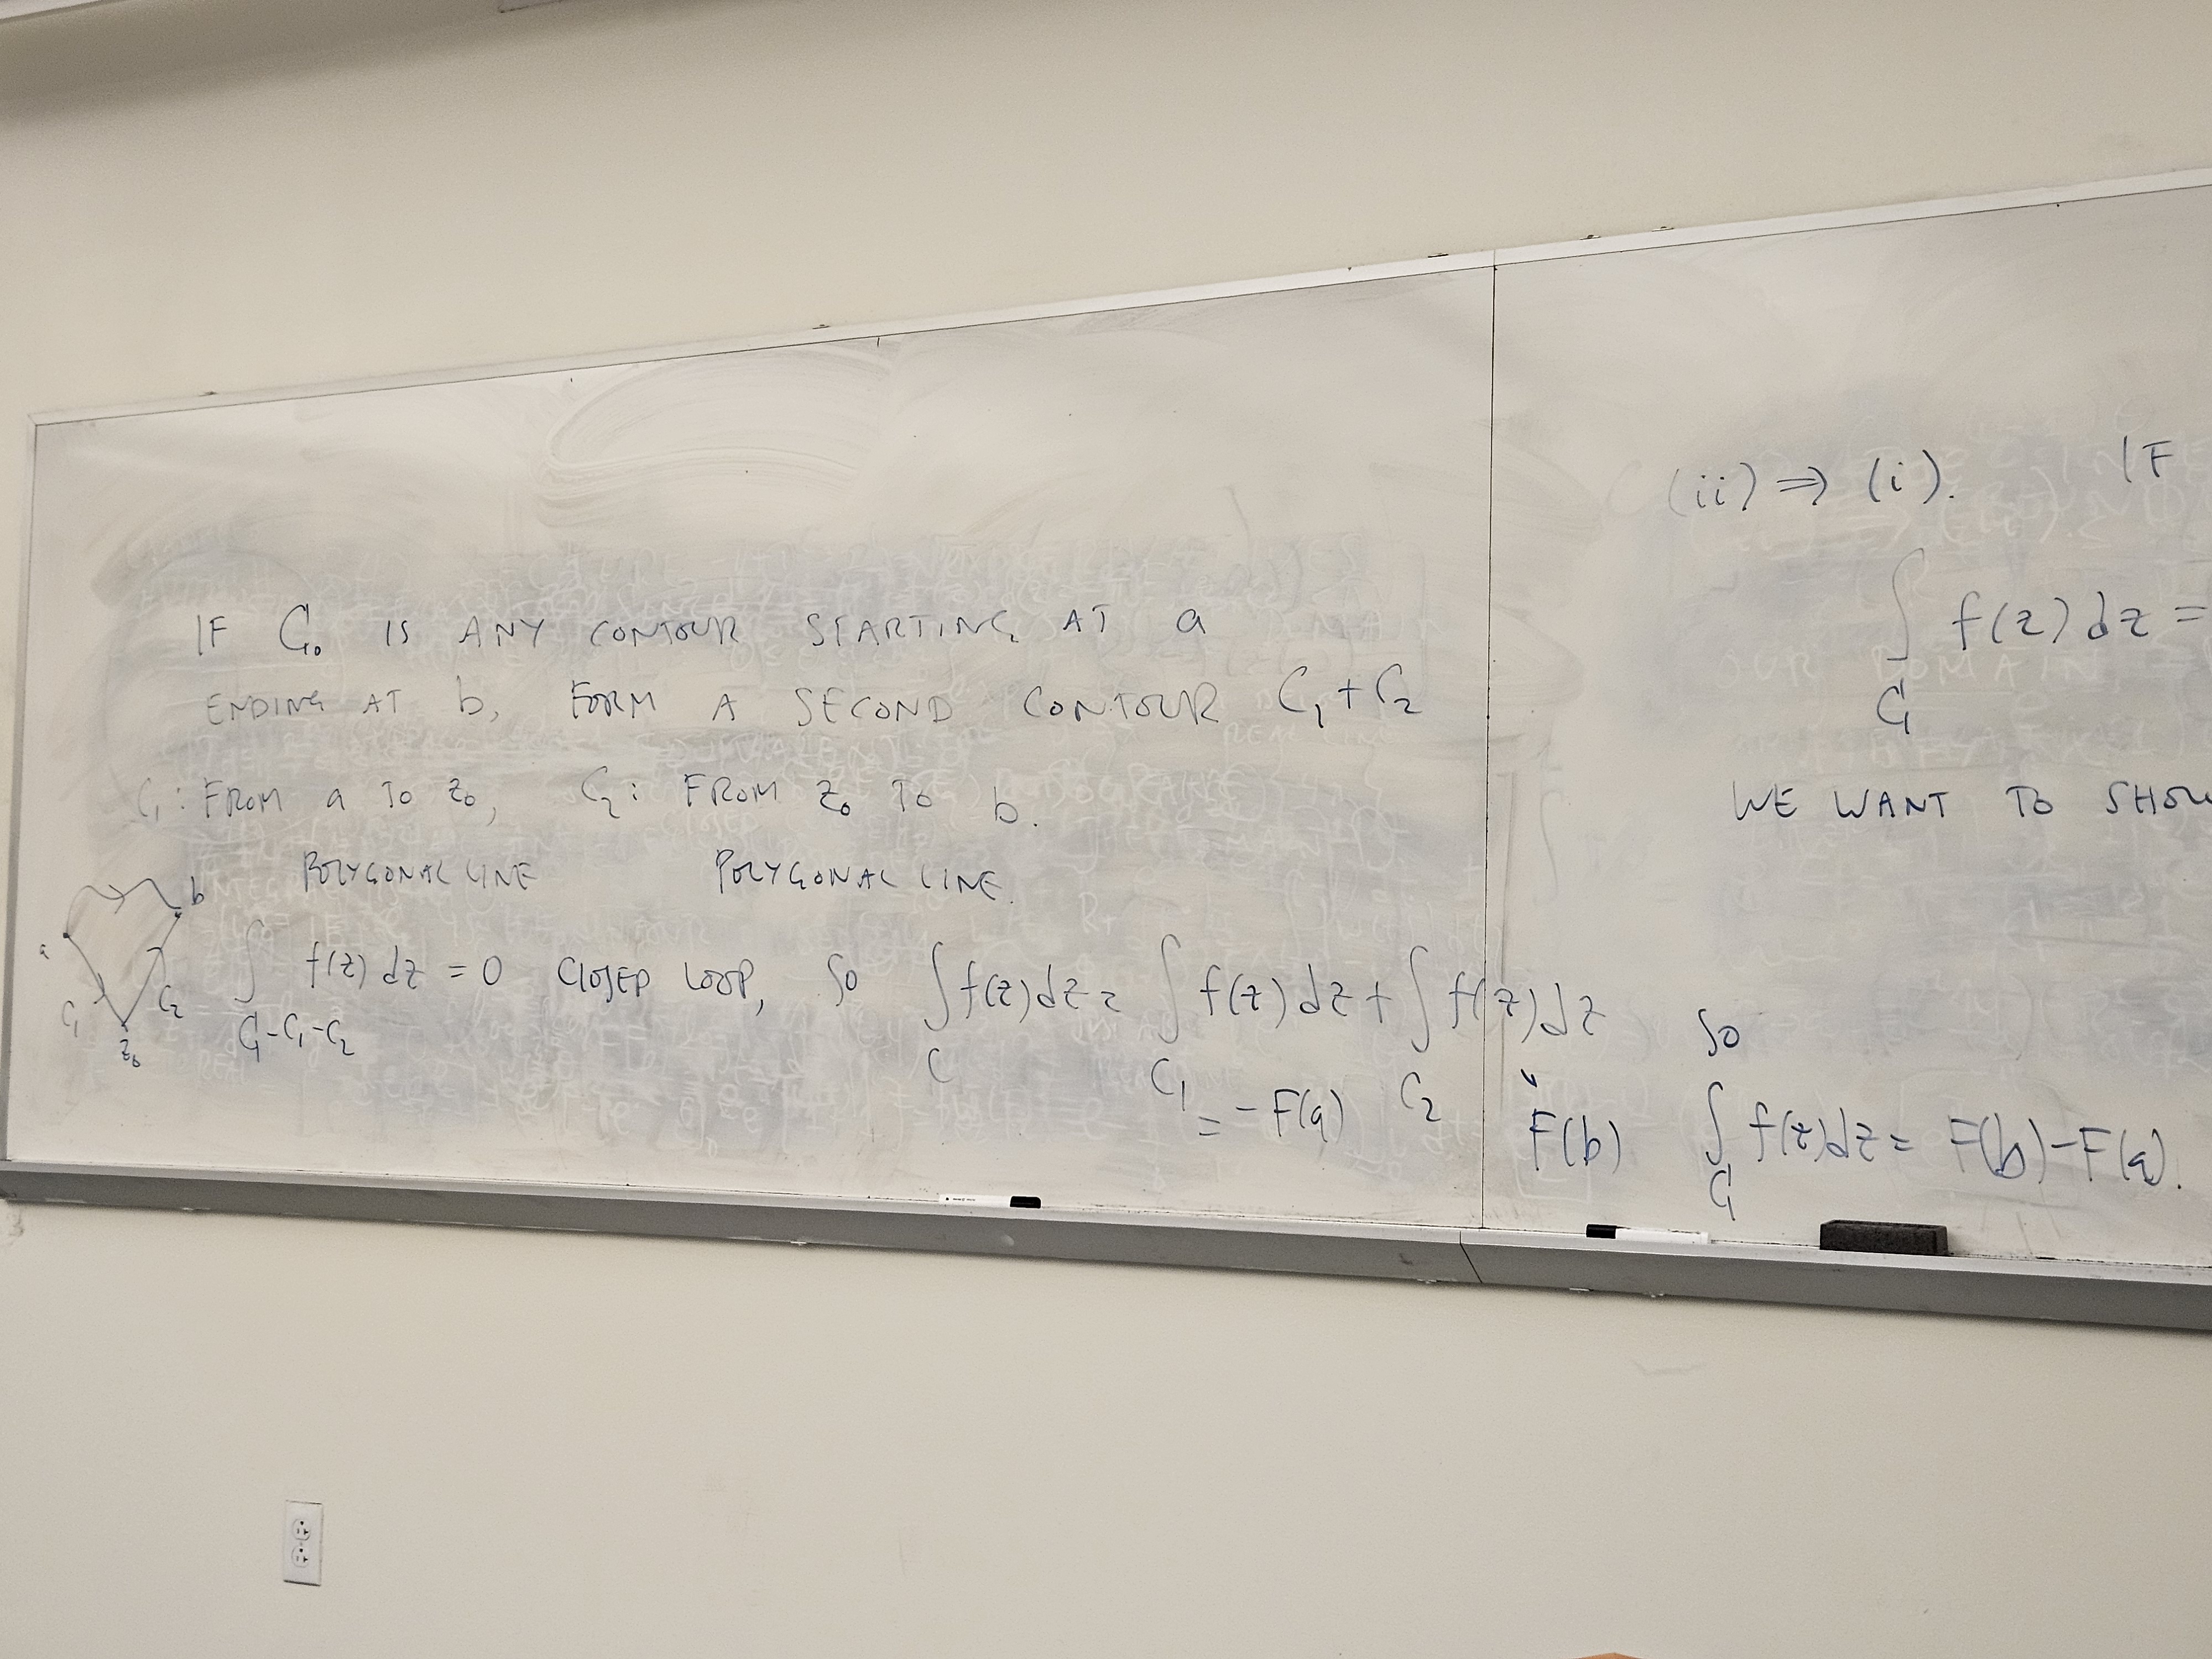 IF C₀ IS ANY CONTOUR STARTING AT a
ENDING AT b, FORM A SECOND CONTOUR C₁+C₂
C₁: FROM a TO z₀, C₂: FROM z₀ TO b.
POLYGONAL LINE POLYGONAL LINE.
a b C₁ C₂ z₀
∫ f(z) dz = 0 CLOSED LOOP, SO ∫ f(z) dz = ∫ f(z) dz + ∫ f(z) dz
C-C₁-C₂ C C₁ C₂
= -F(a) " F(b)
(ii) ⇒ (i). IF
∫ f(z) dz =
C
WE WANT TO SHOW
SO
∫ f(z) dz = F(b) - F(a).
C